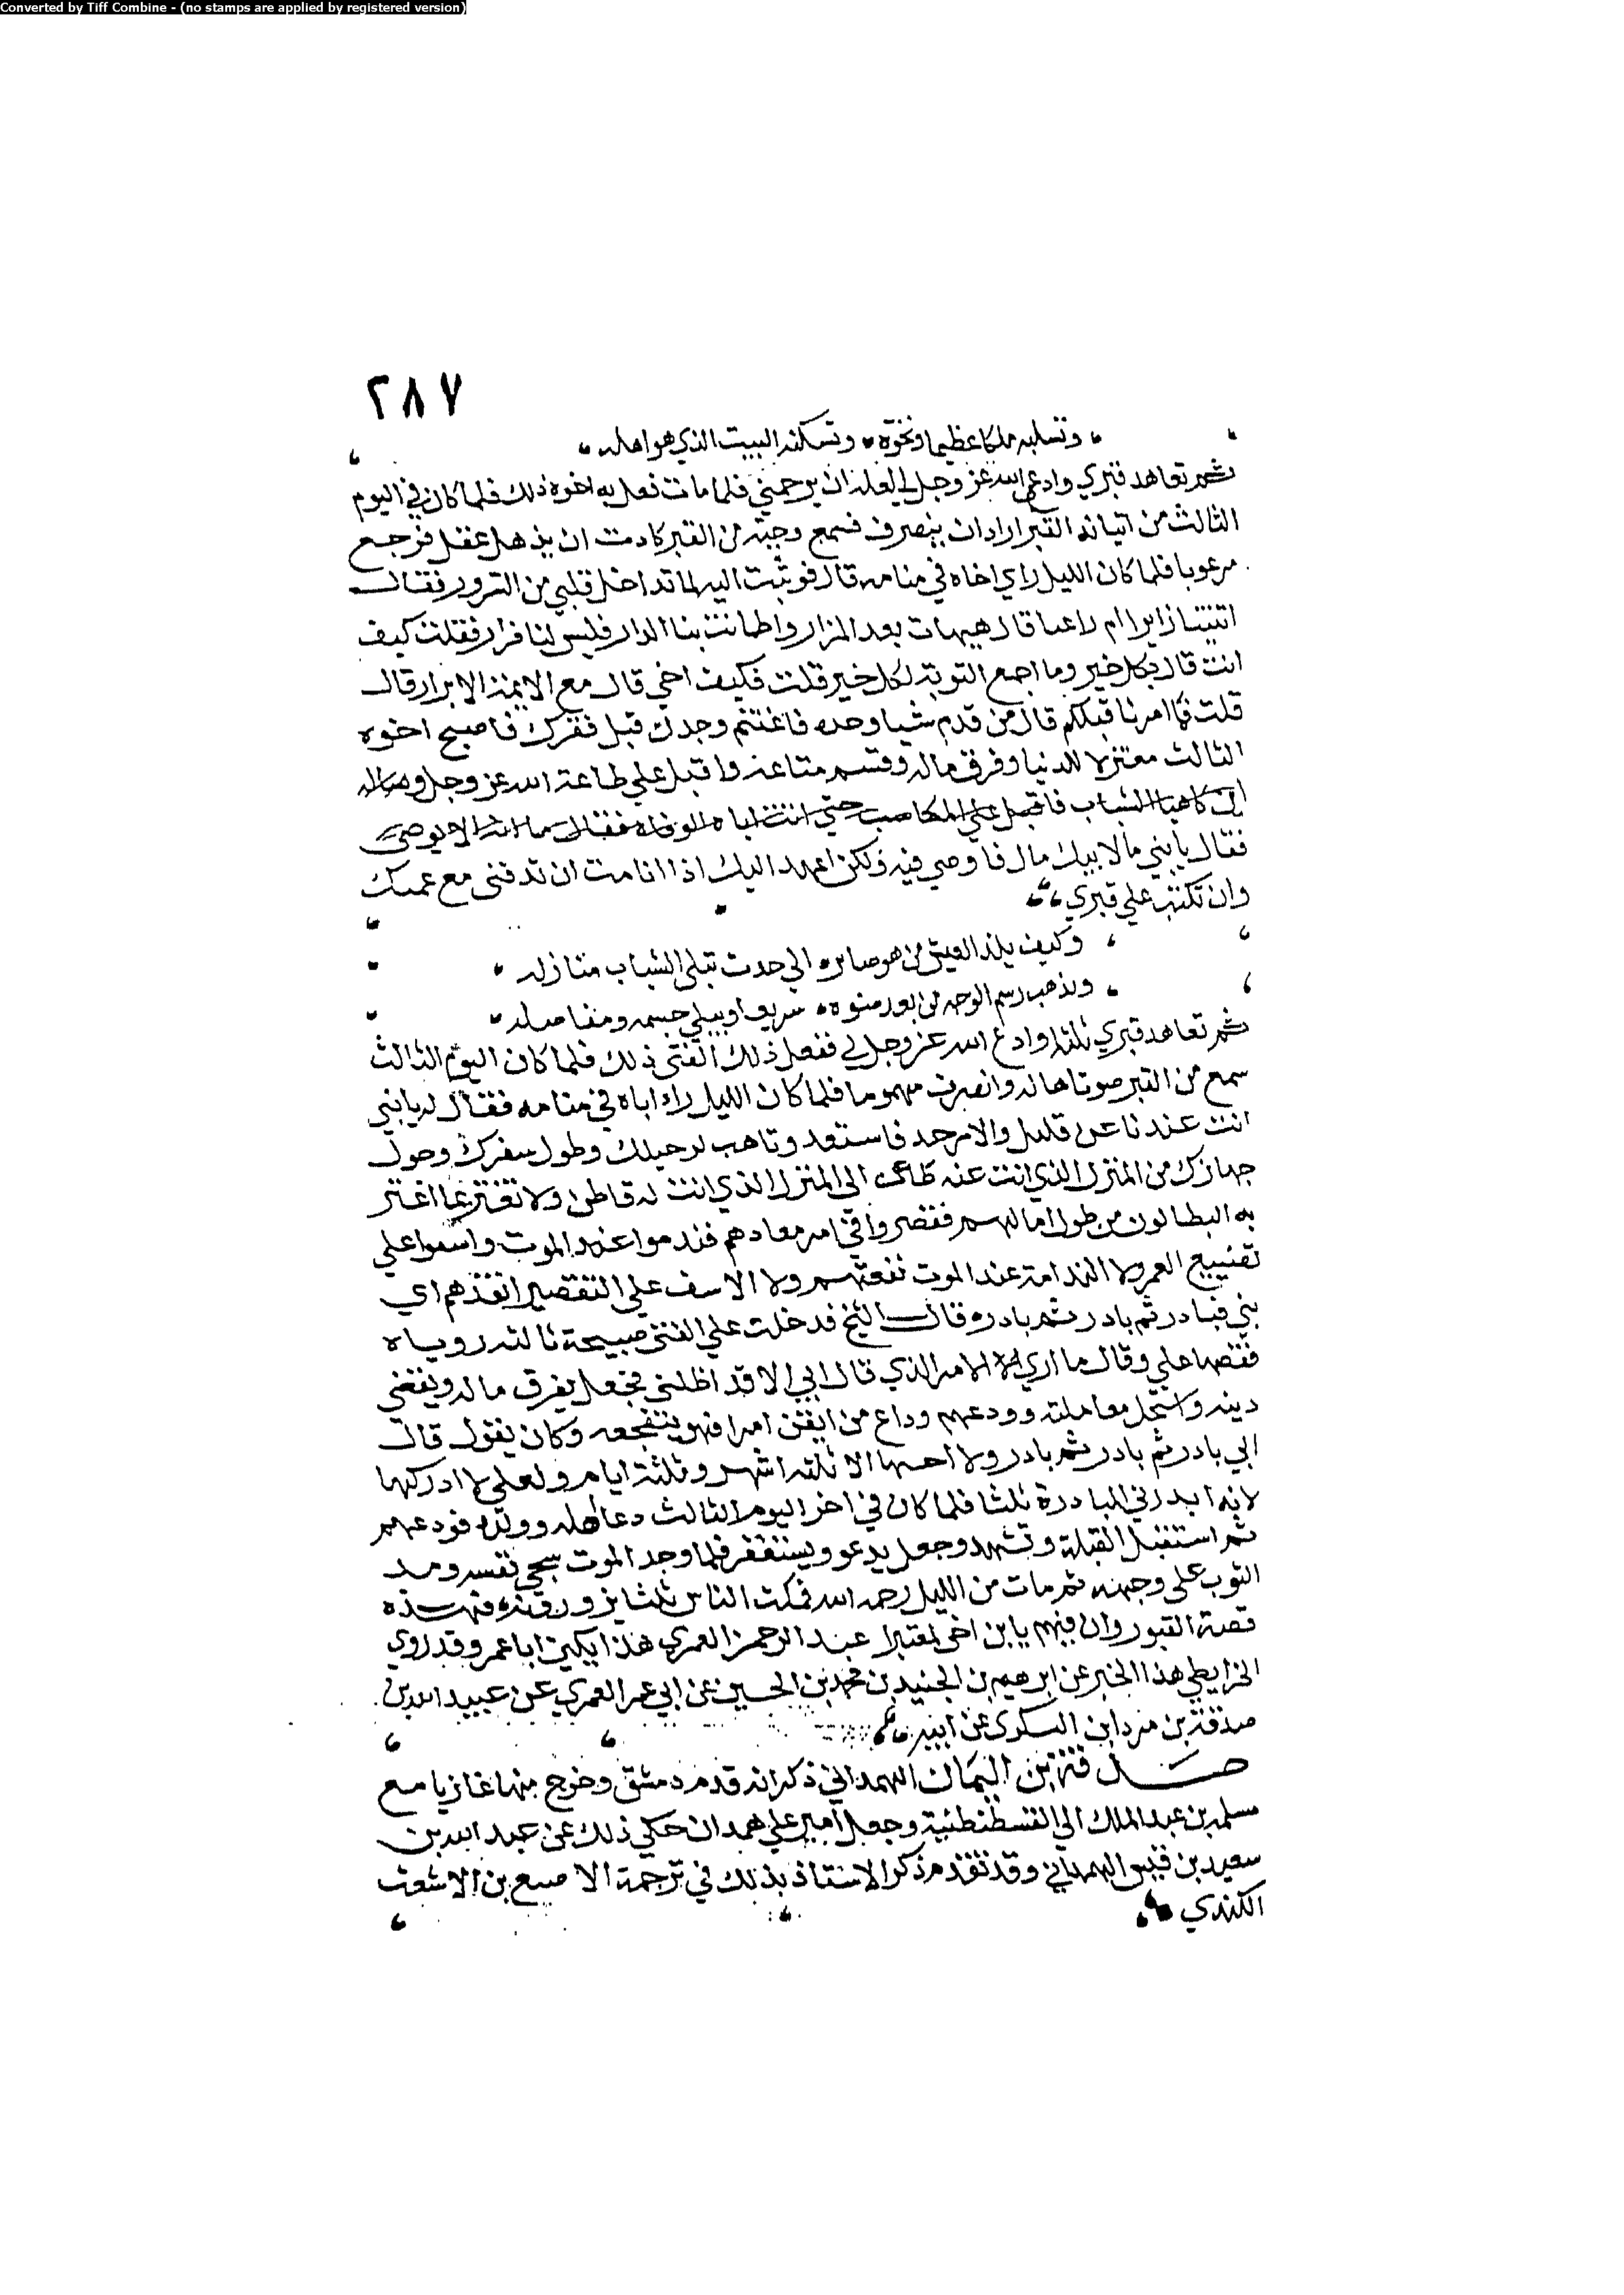 Converted by Tiff Combine - (no stamps are applied by registered version)
٢٨٧
وتسلبه ملكا عظيما ونخوة وتسكنه البيت الذي هو اهله
ثم تعاهد قبري وادع الله عز وجل لي لعله ان يرحمني فلما مات فعل به اخوه ذلك فلما كان في اليوم
الثالث من اتيانه القبر اراد ان ينصرف فسمع وجبة من القبر كادت ان يذهل عقله فرجع
مرعوبا فلما كان الليل راي اخاه في منامه قال فوثبت اليه لما تداخل قلبي من السرور فقال
اتيتنا زايرا ام راغبا قال هيهات بعد المزار واطمانت بنا الدار فليس لنا فرار فقلت كيف
انت قال بكل خير وما اجمع التوبة لكل خير قلت فكيف اخي قال مع الايمة الابرار قال
قلت فما امرنا قبلكم قال من قدم شيا وجده فاغتنم وجدك قبل فقرك فاصبح اخوه
الثالث معتزلا للدنيا وفرق ماله وقسم متاعه واقبل علي طاعة الله عز وجل
الشباب فاقبل علي المكاسب حتي اتت اباه الوفاة فقال
فقال يابني ما لابيك مال فاوصي فيه ولكن اعهد اليك اذا انا مت ان تدفني مع عمك
وان تكتب علي قبري
وكيف يلذ العيش من هو صاير الي جدث تبلي الشباب منازله
ويذهب رسم الوجه من بعد ضوه سريعا ويبلي جسمه ومفاصله
ثم تعاهد قبري ثلثا وادع الله عز وجل لي ففعل ذلك الفتي ذلك فلما كان اليوم الثالث
سمع من القبر صوتا هاله وانصرف مهموما فلما كان الليل راء اباه في منامه فقال له يابني
انت عندنا عن قليل والامر جد فاستعد وتاهب لرحيلك وطول سفرك وحول
جهازك من المنزل الذي انت عنه ظاعن الي المنزل الذي انت له قاطن ولا تغتر بما اغتر
به البطالون من طول امالهم فقصروا في امر معادهم فندموا عند الموت واسفوا علي
تضييع العمر ولا الندامة عند الموت نفعتهم ولا الاسف علي التقصير انقذهم اي
بني فبادر ثم بادر ثم بادر قال الشيخ فدخلت علي الفتي صبيحة ثالثه روياه
فقصها علي وقال ما اري الامر الذي قال ابي الا قد اظلني فجعل يفرق ماله ويقضي
دينه معامليه وودعهم وداع من ايقن امرا فهو يتفجعه وكان يقول قال
ابي بادر ثم بادر ثم بادر ولا احسبها الا ثلثة اشهر وثلثة ايام ولعلي لا ادركها
لانه ابدرني المبادرة ثلثا فلما كان في اخر اليوم الثالث دعا اهله وولده فودعهم
ثم استقبل القبلة وتشهد وجعل يدعو ويستغفر فلما وجد الموت سجي نفسه ومد
الثوب علي وجهه ثم مات من الليل رحمه الله فمكث الناس ثلثا يزورون قبره فهذه
قصة القبور وان فيهم يا بن اخي لمعتبرا عبد الرحمن العمري هذا يكني ابا عمر وقد روي
الخرايطي هذا الخبر عن ابرهيم بن الجنيد بن محمد بن الحسين عن ابي عمر العمري عن عبيد الله بن
صدقة بن مرداس البكري عن ابيه
صدقة بن اليمان الهمداني ذكر انه قدم دمشق وخرج منها غازيا مع
مسلمة بن عبد الملك الي القسطنطينية وجعل اميرا علي همدان حكي ذلك عن عبد الله بن
سعيد بن قيس الهمداني وقد تقدم ذكر الاستاذ بذلك في ترجمة الاصبع بن الاشعث
الكندي